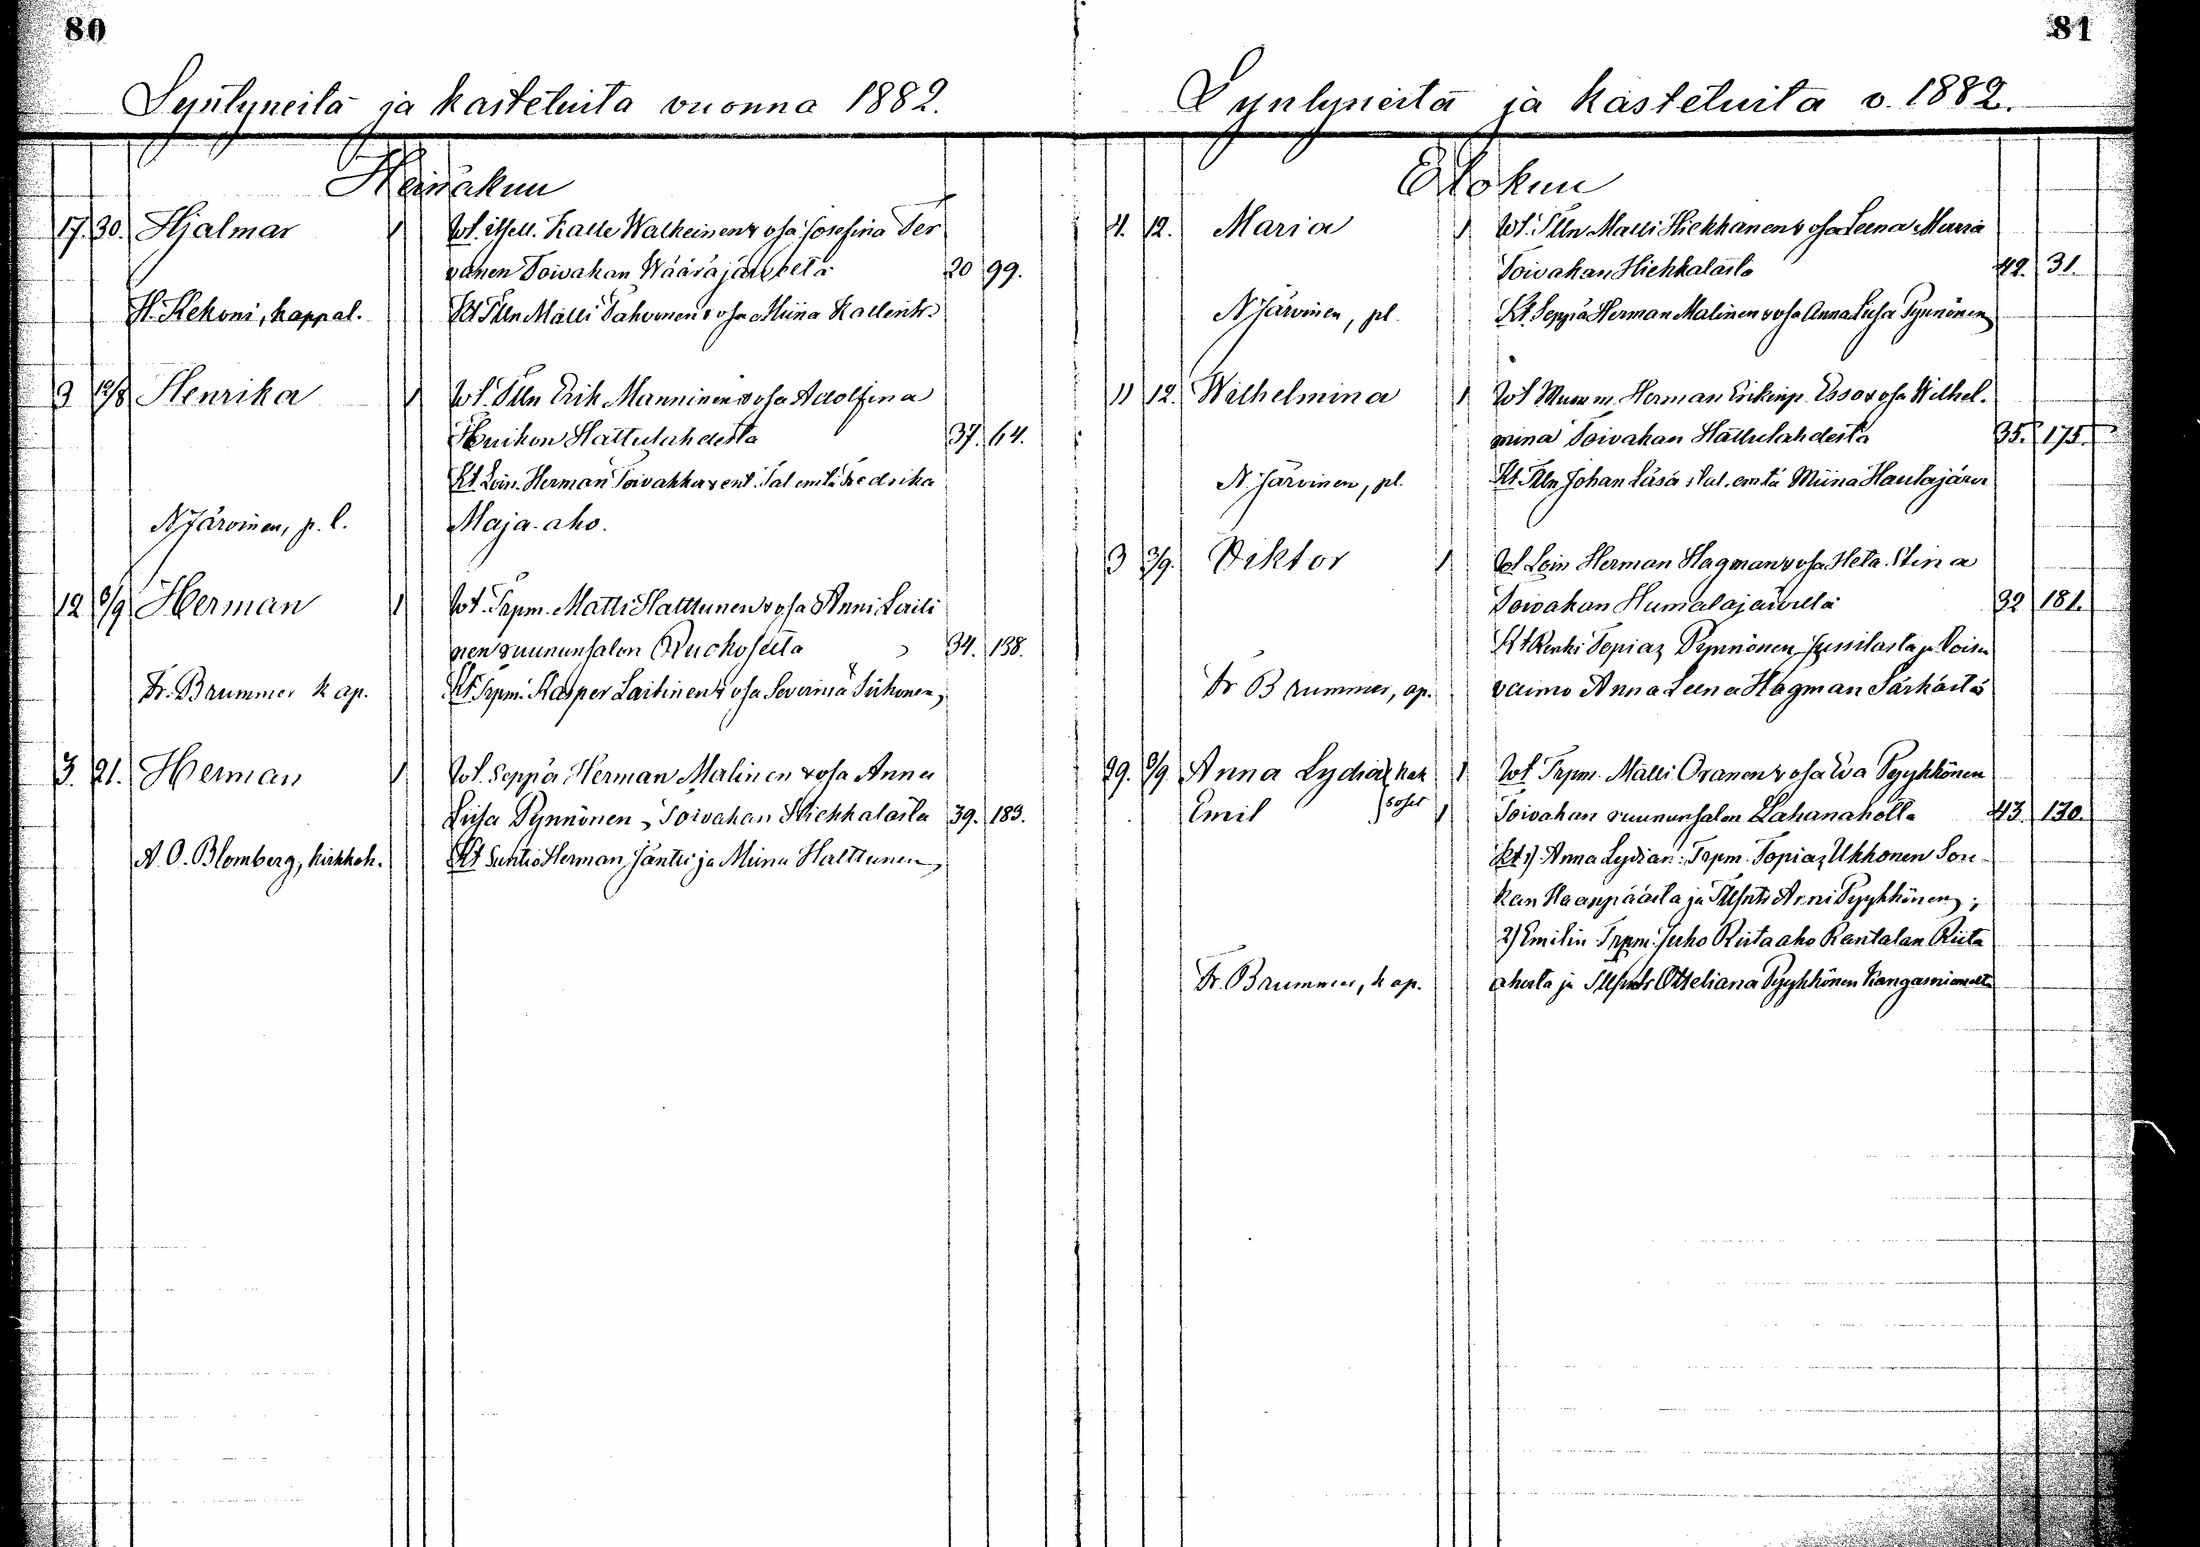 80
Syntyneitä ja kastetuita vuonna 1882.
Heinäkuu
17. 30. Hjalmar 1 Wt. itsell. Kalle Walkeinen & vsa Josefina Ter
vanen Toivakan Wääräjärveltä 20 99.
H. Kekoni, kappal. Kt Tlln Matti Pahvonen & vsa Miina Kallentr.
9 12/8 Henrika 1 Wt. Tlln Erik Manninen & vsa Adolfina
Huikon Hattulahdesta 37. 64.
Kt Loin. Herman Toivakka & ent. Tal. emtä Fredrika
N Järvinen, p. l. Maja-aho.
12 3/9 Herman 1 Wt. Trpm. Matti Halttunen & vsa Anni Laiti
nen ruununsalon Ruokoselta 34. 138.
Fr. Brummer k ap. Kt Trpm. Kasper Laitinen & vsa Severina Siikonen,
3. 21. Herman 1 Wt. Seppä Herman Malinen & vsa Anna
Liisa Pynnönen, Toivakan Hiekkalasta 39. 183.
A. O. Blomberg, kirkkoh. Kt Suntio Herman Jäntti ja Miina Halttunen,
81
Syntyneitä ja kastetuita v. 1882.
Elokuu
4. 12. Maria 1 Wt. Tlln Matti Hiekkanen & vsa Leena Maria
Toivakan Hiekkalasta 42. 31.
N Järvinen, pl. Kt. Seppä Herman Malinen & vsa Anna Liisa Pynnönen
11 12. Wilhelmina 1 Wt Muurm. Herman Erikinp. Esso & vsa Wilhel-
mina Toivakan Hattulahdesta 35. 175.
N. Järvinen, pl. Kt. Tlln Johan Läsä, tal. emtä Miina Hautajärvi
3 3/9. Viktor 1 Wt Loin Herman Hagman & vsa Heta Stina
Toivakan Humalajärveltä 32 181.
Kt Renki Topiaz Pynnönen Jussilasta ja Loisen
Fr Brummer, ap. vaimo Anna Leena Hagman Särkästä
29. 3/9 Anna Lydia } kak 1 Wt Trpm. Matti Oranen & vsa Eva Pyykkönen
Emil } soset 1 Toivakan ruununsalon Lahanaholta 43 130.
Kt 1) Anna Lydian: Trpm. Topiaz Ukkonen Soi-
kan Haanpäästä ja Anni Pyykkönen;
2) Emilin Trpm. Juho Riitaaho Rantalan Riita
Fr. Brummer, k ap. ahosta ja Otteliana Pyykkönen Kangasniemeltä